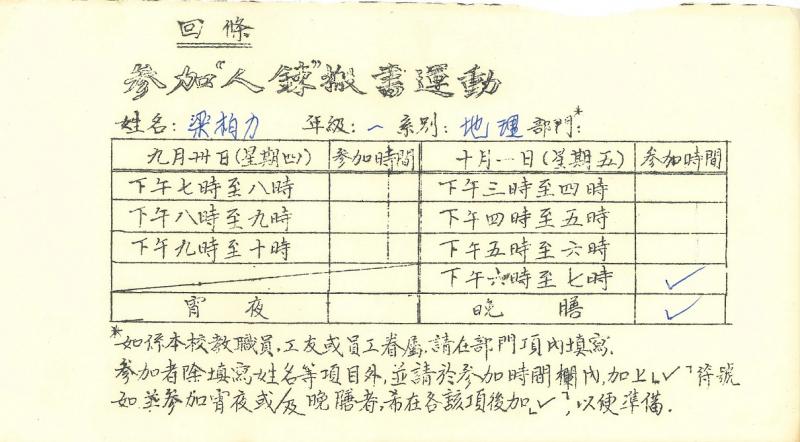 回條
參加“人鍊”搬書運動
姓名：梁柏力 年級：一 系別：地理 部門*：
九月卅日(星期四) 參加時間 十月一日(星期五) 參加時間
下午七時至八時 下午三時至四時
下午八時至九時 下午四時至五時
下午九時至十時 下午五時至六時
下午六時至七時 ✓
宵夜 晚膳 ✓
*如係本校教職員，工友或員工眷屬，請在部門項內填寫.
參加者除填寫姓名等項目外，並請於參加時間欄內，加上「✓」符號
如並參加宵夜或/及晚膳者，希在各該項後加「✓」，以便準備.